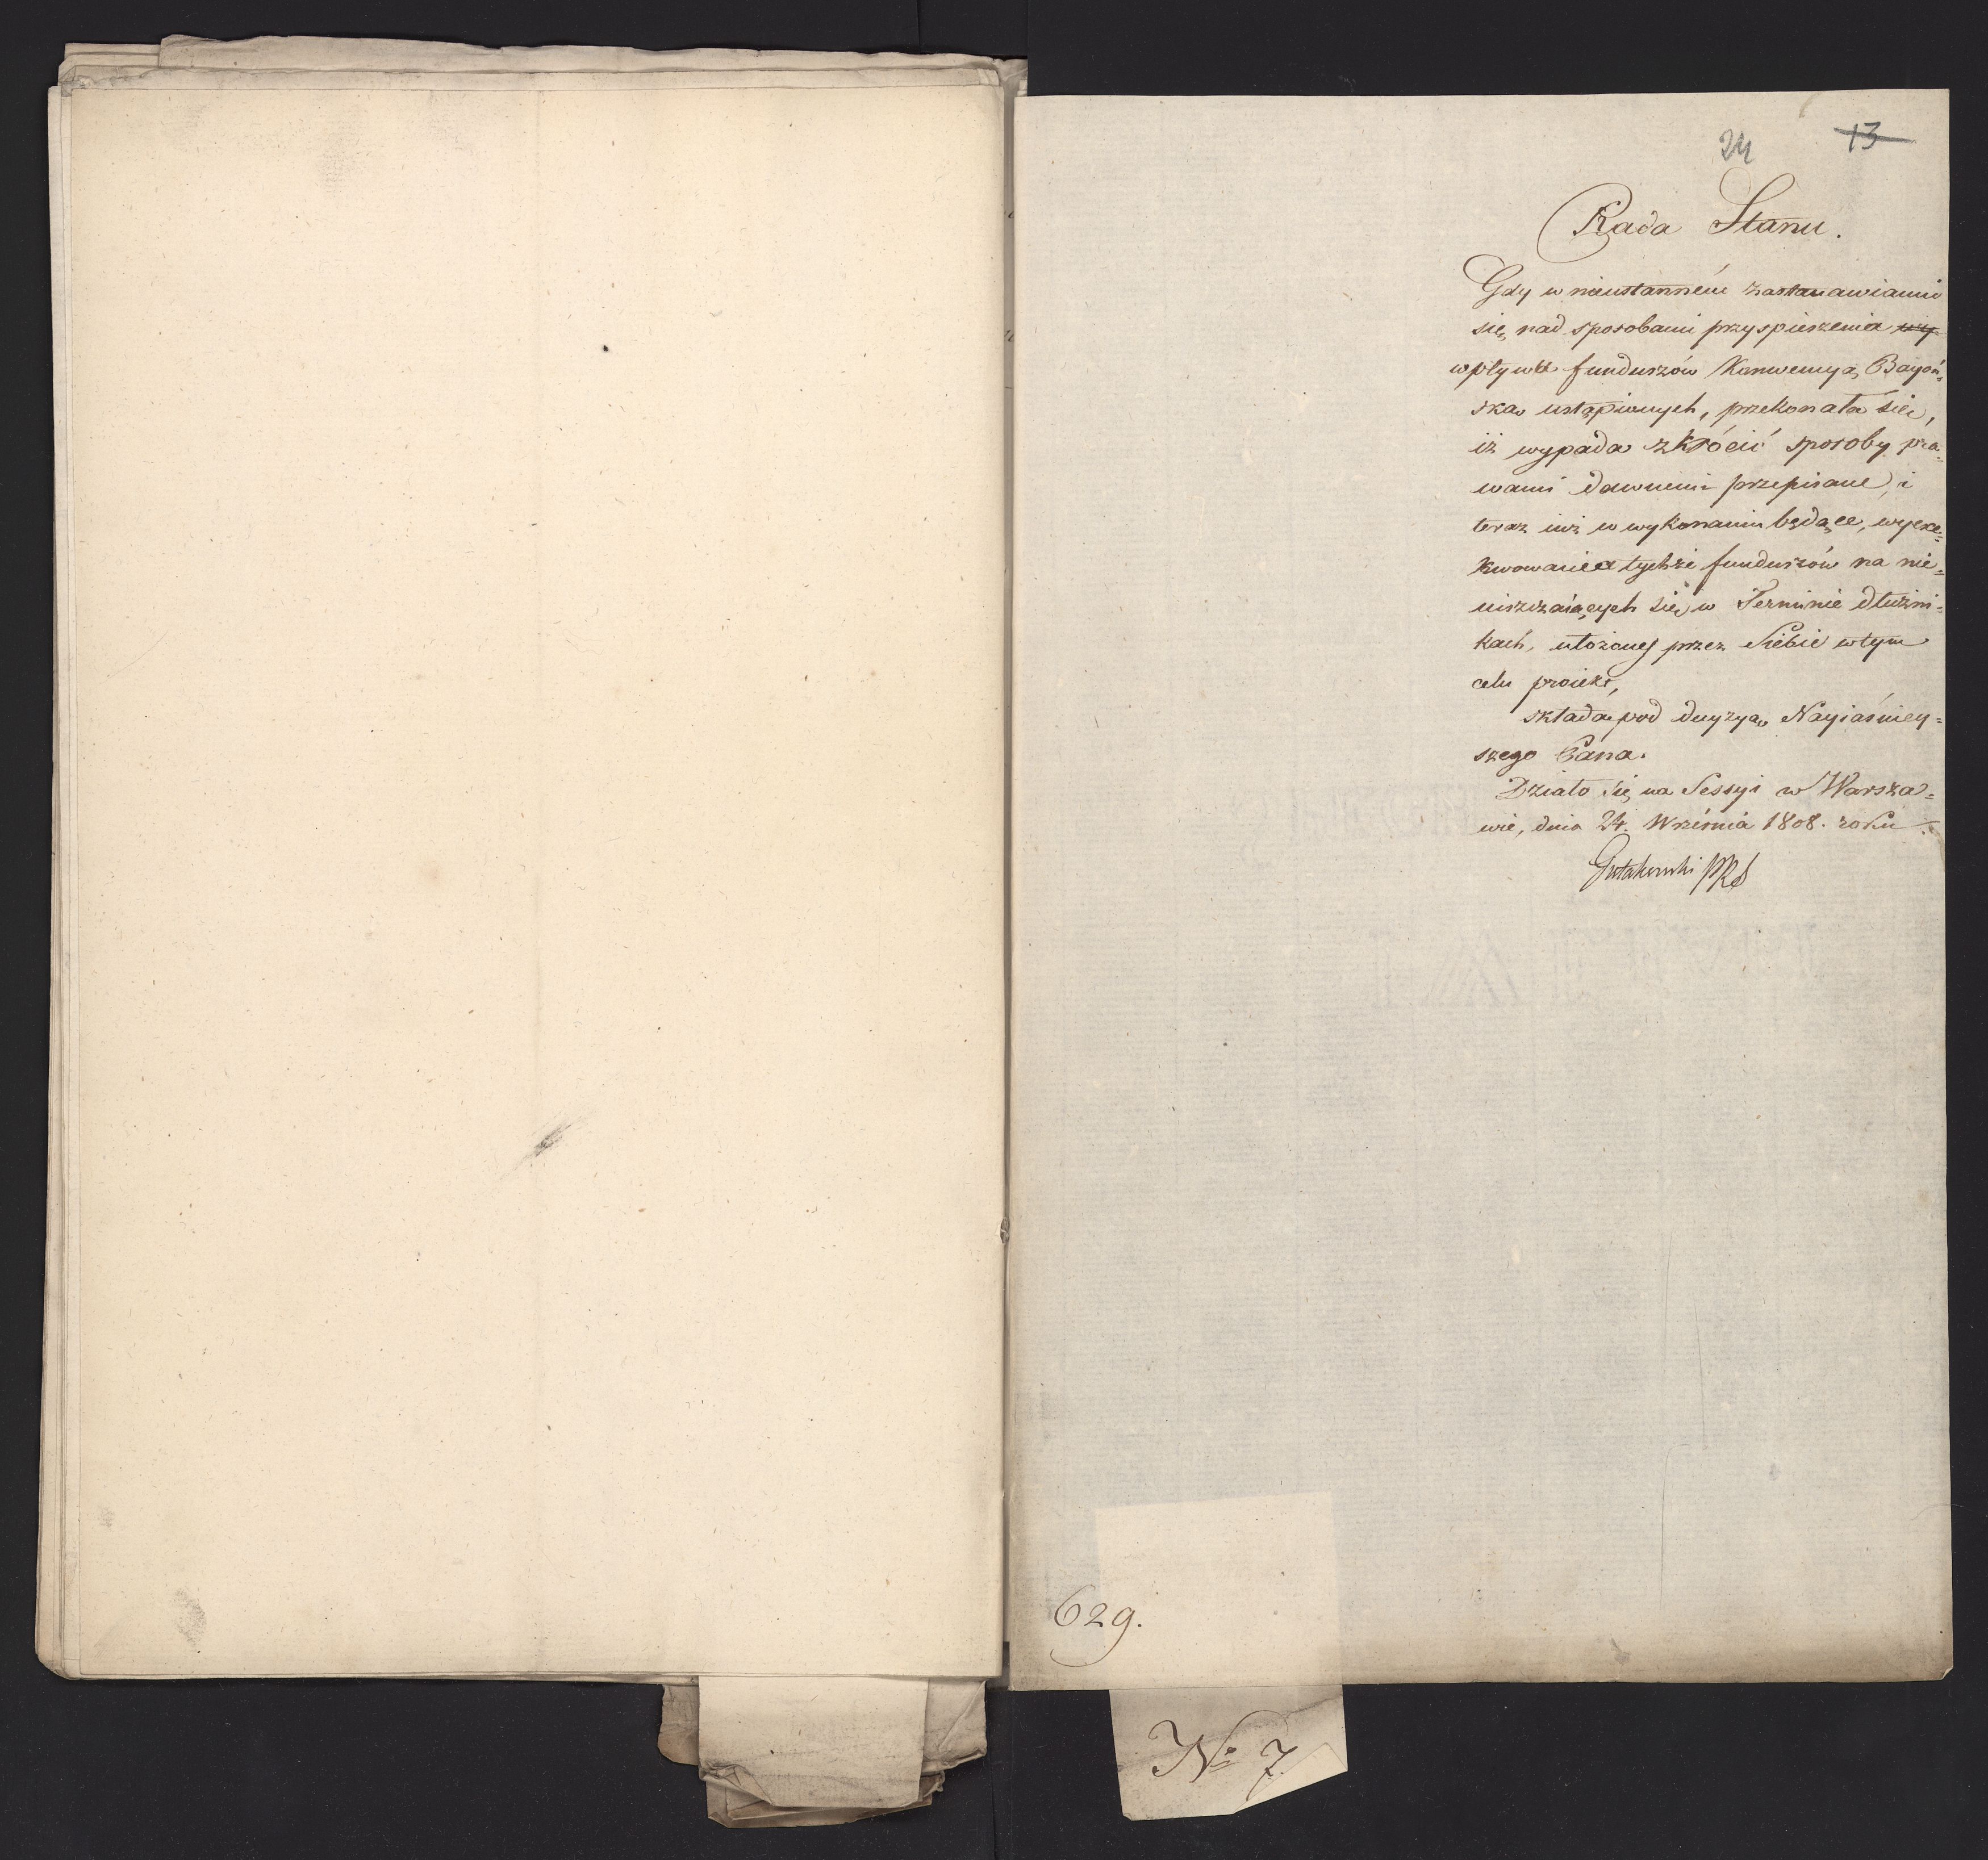 24 13
Rada Stanu.
Gdy w nieustanném zastanawianiu
się nad sposobami przyspieszenia wy-
wpływu funduszów Konwencyą Bayoń-
ską ustąpionych, przekonała się,
iż wypada zkrócić sposoby pra-
wami dawnemi przepisane, i
teraz iuż w wykonaniu będące, wyexe-
kwowania tychże funduszów na nie-
uiszczaiących się w Terminie dłużni-
kach, ułożony przez Siebie w tym
celu proiekt,
składa pod decyzyą Nayiaśniey-
szego Pana.
Działo się na Sessyi w Warsza-
wie, dnia 24. Września 1808. roku.
Gutakowski PRS
629.
No 7.